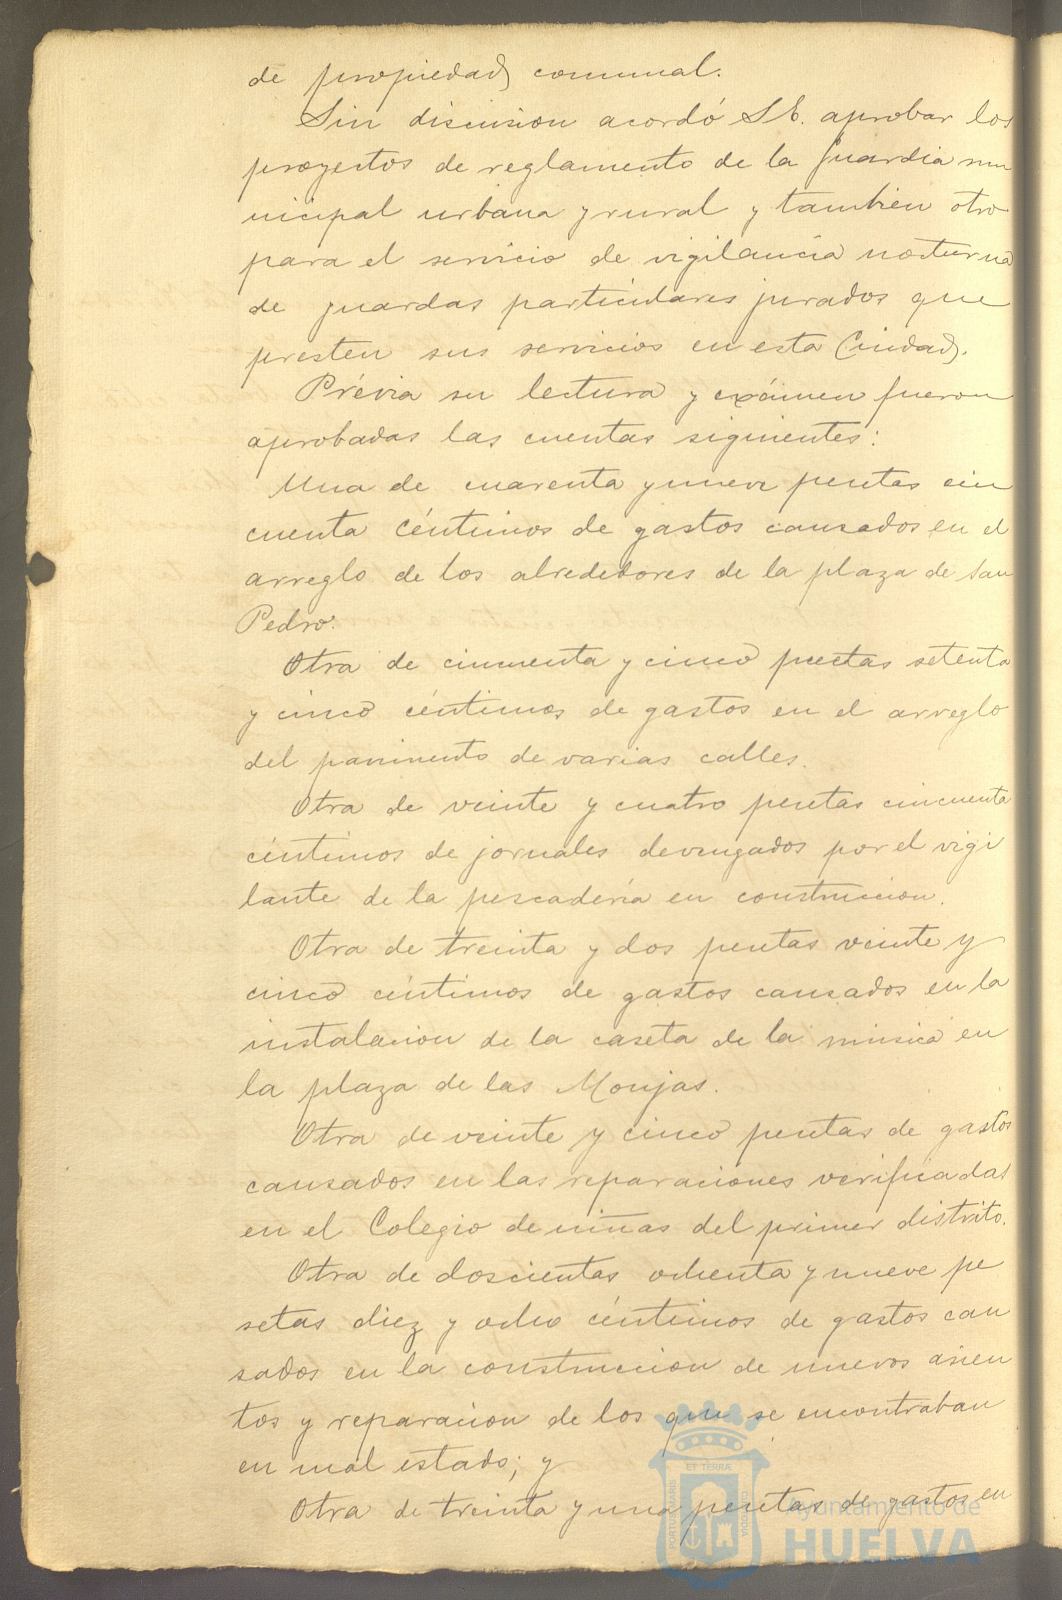 de propiedad comunal.
Sin discusion acordó S.E. aprobar los
proyectos de reglamento de la Guardia mu
nicipal urbana y rural y tambien otro
para el servicio de vigilancia nocturna
de guardas particulares jurados que
presten sus servicios en esta Ciudad.
Prévia su lectura y exámen fueron
aprobadas las cuentas siguientes:
Una de cuarenta y nueve pesetas cin
cuenta céntimos de gastos causados en el
arreglo de los alrededores de la plaza de San
Pedro.
Otra de cincuenta y cinco pesetas setenta
y cinco céntimos de gastos en el arreglo
del pavimento de varias calles.
Otra de veinte y cuatro pesetas cincuenta
céntimos de jornales devengados por el vigi
lante de la pescadería en construccion.
Otra de treinta y dos pesetas veinte y
cinco céntimos de gastos causados en la
instalacion de la caseta de la música en
la plaza de las Monjas.
Otra de veinte y cinco pesetas de gastos
causados en las reparaciones verificadas
en el Colegio de niñas del primer distrito.
Otra de doscientas ochenta y nueve pe
setas diez y ocho céntimos de gastos cau
sados en la construccion de nuevos asien
tos y reparacion de los que se encontraban
en mal estado; y
Otra de treinta y una pesetas de gastos en
Ayuntamiento de
HUELVA
PORTUS MARIS
ET TERRÆ
CUSTODIA